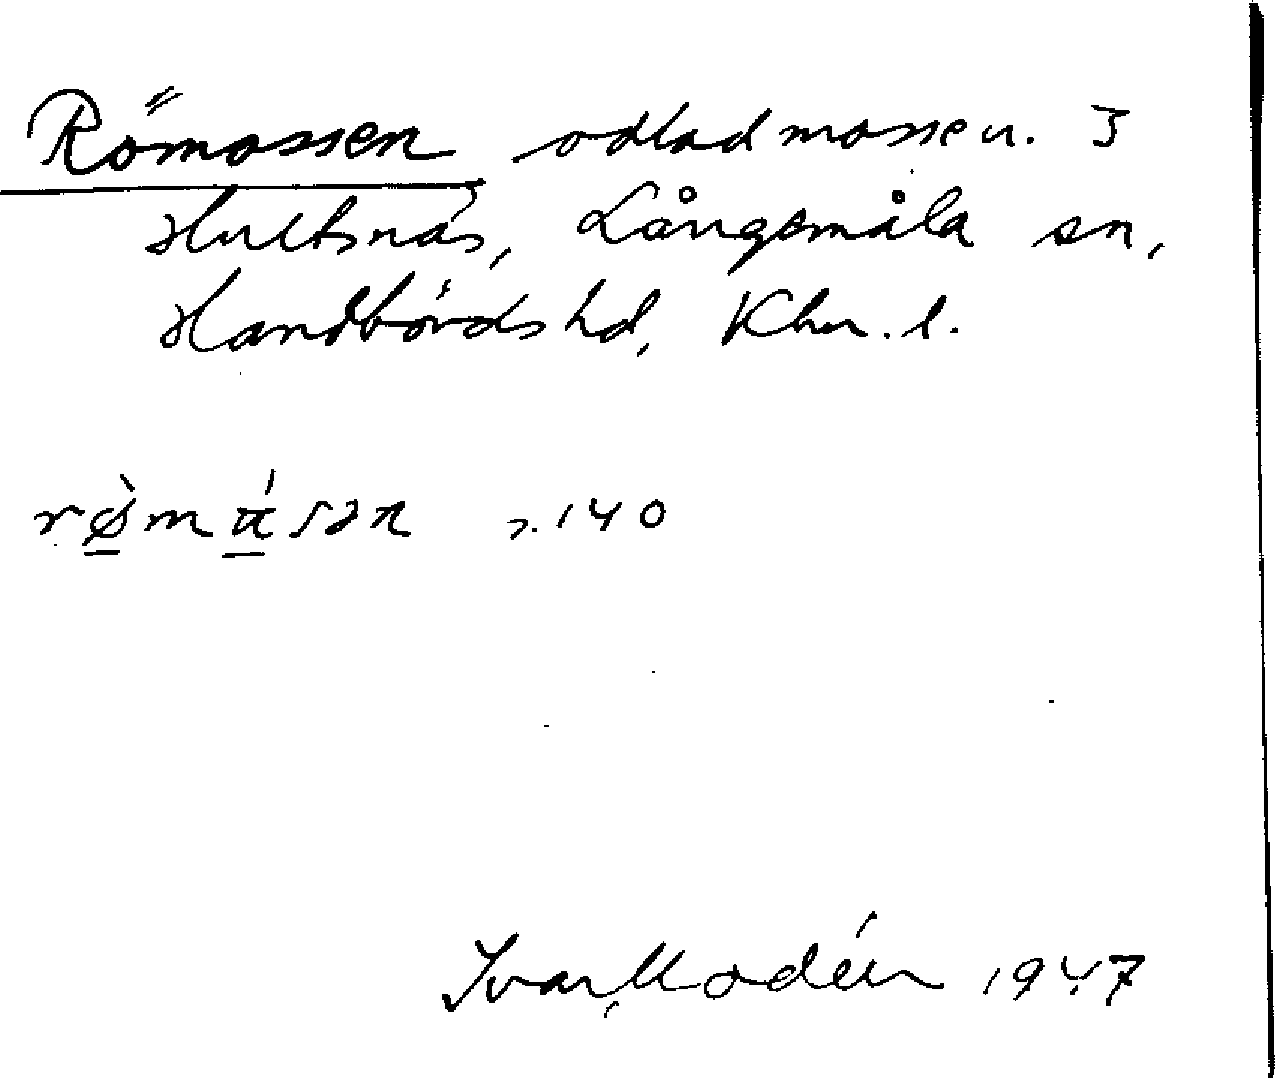 Römossen odlad mosse n. 3
Hultsnäs, Långemåla sn,
Handbörds hd, Klm. l.
rø̀mɑ́sən 140
Ivar Modéer 1947